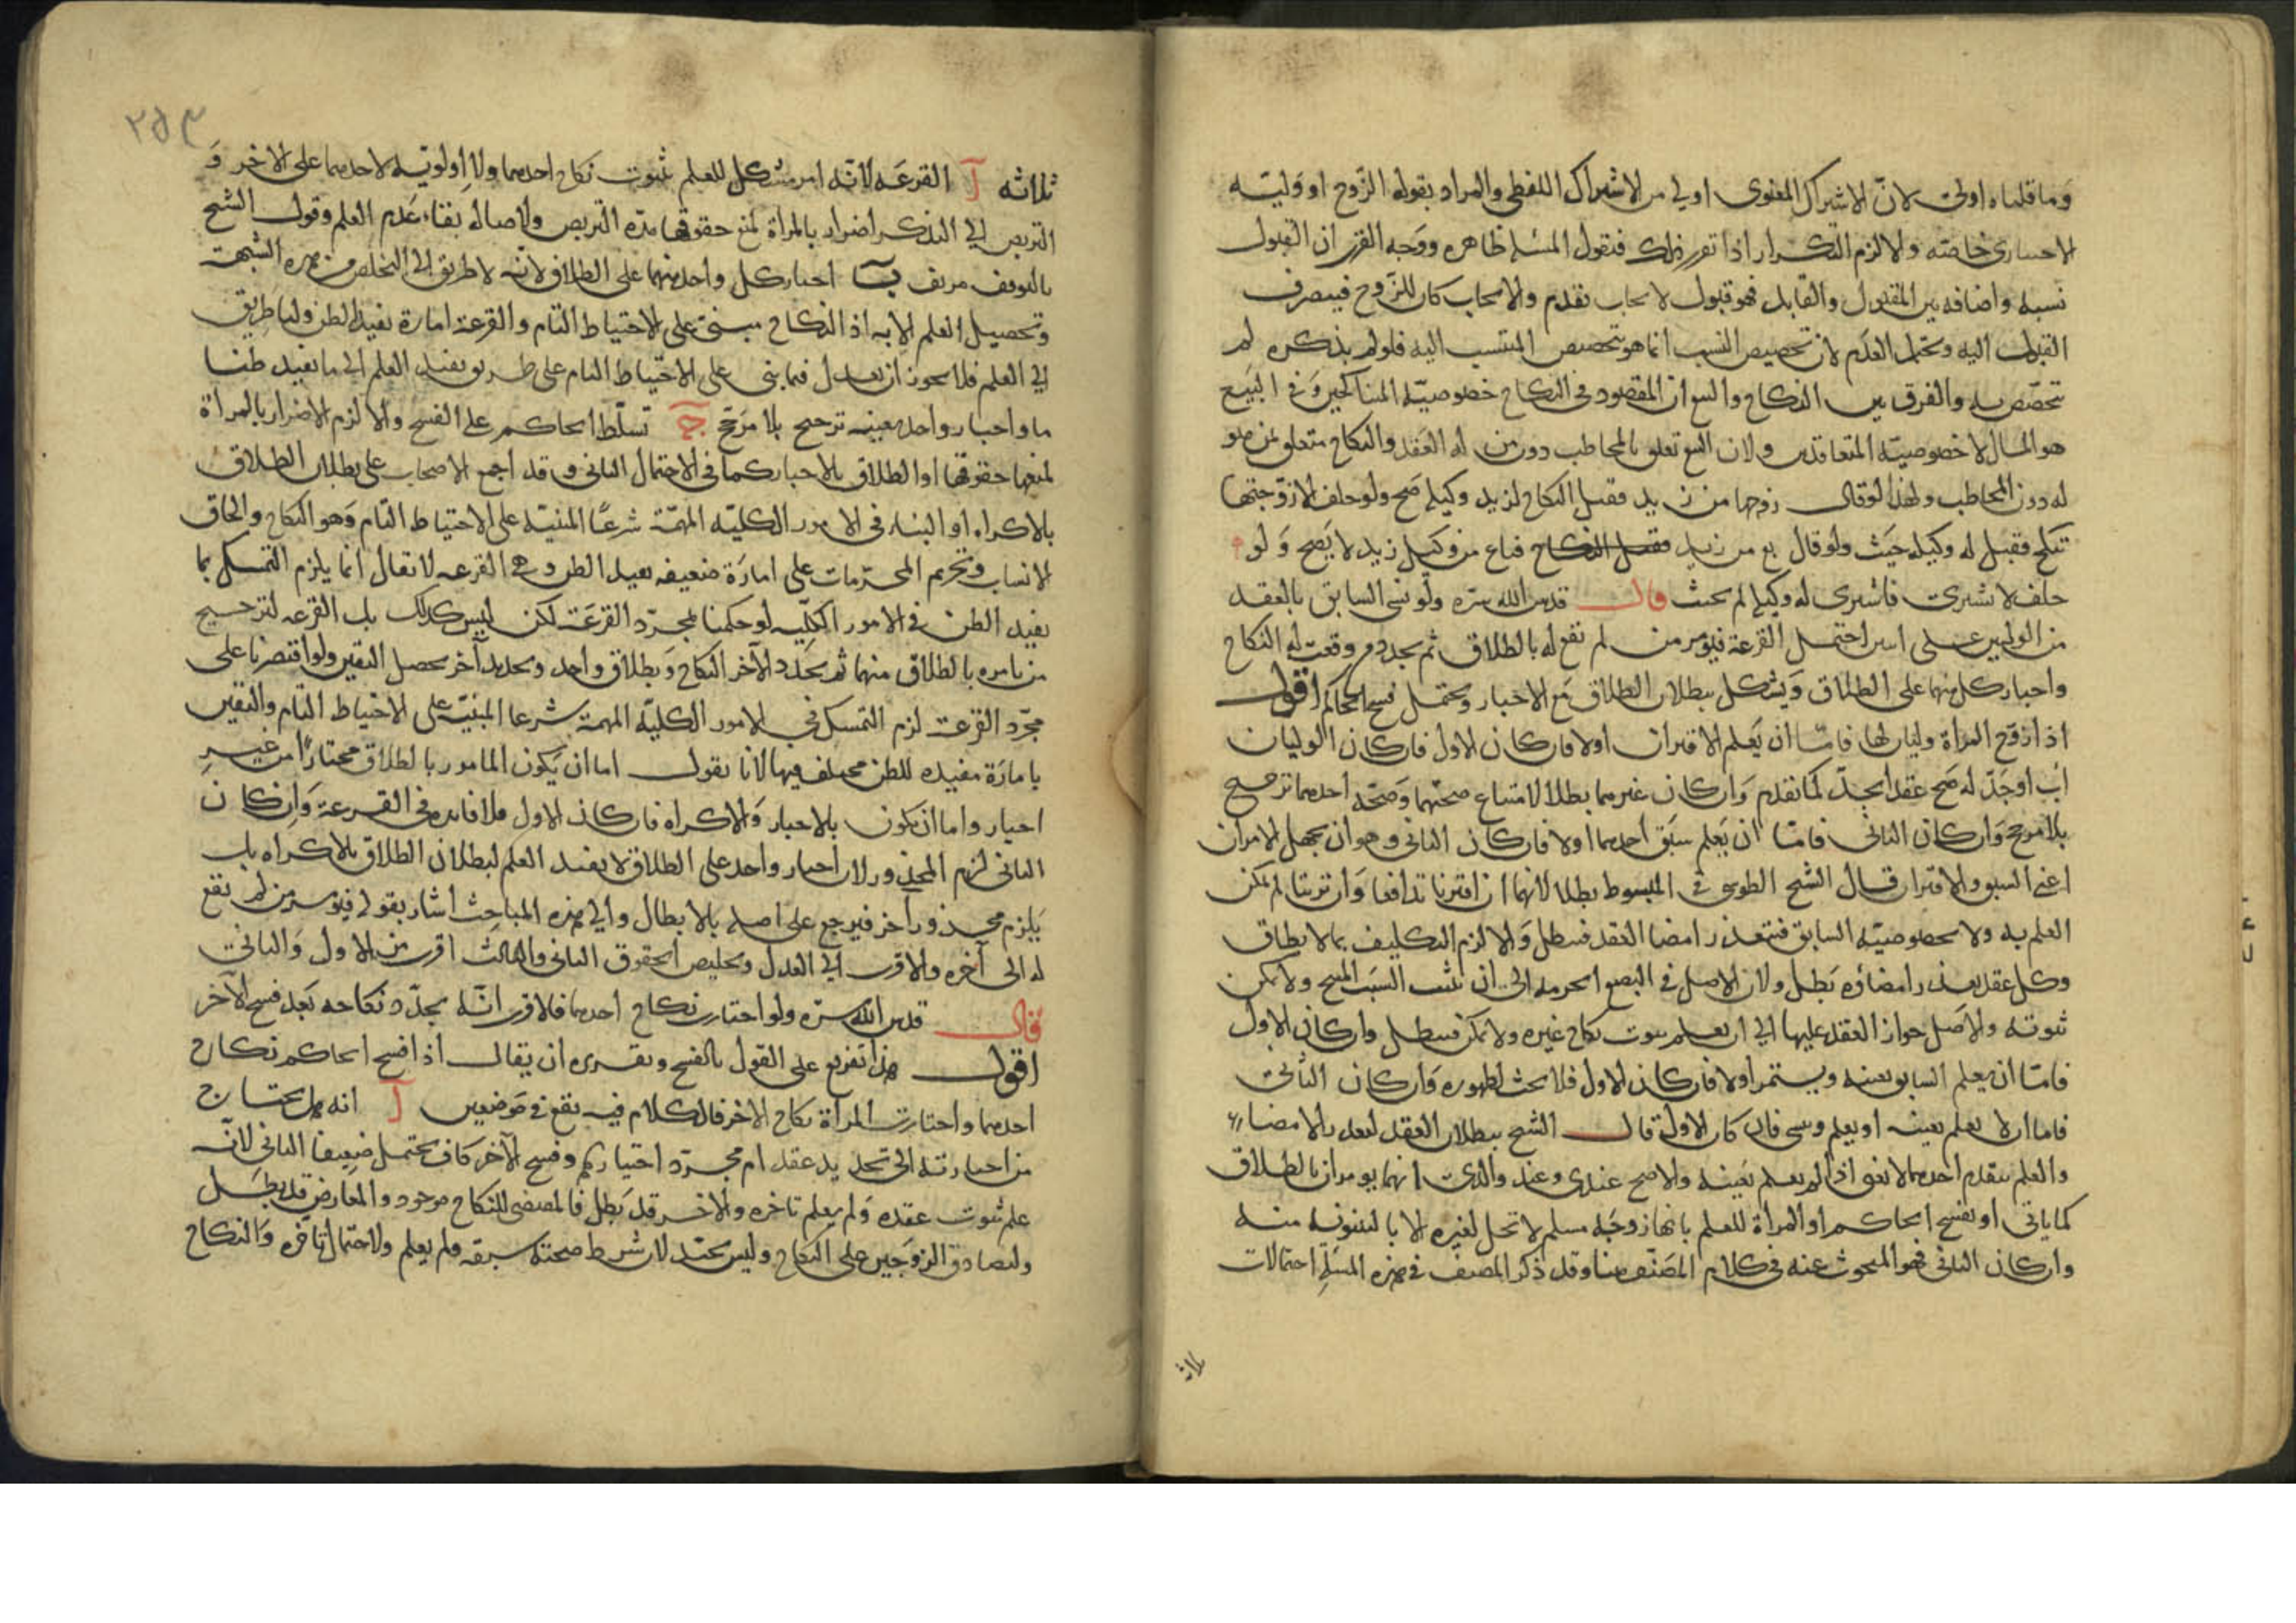 وما قلناه اولى لان الاشتراك المعنوى اولى من الاشتراك اللفظى والمراد بقوله الزوج او وليته
الاحسارى خاصته والا لزم التكرار اذا تقرر ذلك فنقول المسئلة ظاهره ووجه الفرق ان القبول
نسبه واضافه بين المقبول والقابل فهو قبول لايجاب تقدم والايجاب كان للزوج فينصرف
القبول اليه ويحتمل العدم لان تخصيص النسب انما هو بتخصيص المنتسب اليه فلو لم يذكره لم
تتخصص به والفرق بين النكاح والبيع ان المقصود فى النكاح خصوصيّة المتناكحين وفى البيع
هو المال لا خصوصيّة المتعاقدين ولان البيع تعلق بالمخاطب دون من له العقد والنكاح متعلق بمن هو
له دون المخاطب ولهذا لو قال زوجها من زيد فقبل النكاح لزيد وكيله صح ولو حلف لا زوجتها
نكح فقبل له وكيله حيث ولو قال بع من زيد فقبل النكاح فباع من وكيل زيد لا يصح ولو
حلف لا نشترى فاشترى له وكيله لم يحنث قال قدس الله سره ولو نسى السابق بالعقد
من الوليين على اسر احتمل القرعة فيؤمر من لم تقع له بالطلاق ثم يجدد من وقعت له النكاح
واجبار كل منهما على الطلاق ويشكل ببطلان الطلاق مع الاجبار ويحتمل فسخ الحاكم اقول
اذا زوج المراة وليان لها فامّا ان يعلم الاقتران اولا فان كان الاول فان كان الوليان
اب او جدّ له صح عقد الجدّ كما تقدم وان كان غيرهما بطلا لامتناع صحتهما وصحة احدهما ترجيح
بلا مرجح وان كان الثانى فامّا ان يعلم سبق احدهما اولا فان كان الثانى وهو ان يجهل الامران
اعنى السبق والاقتران قال الشيخ الطوسى فى المبسوط بطلا لانهما ان اقترنا تدافعا وان ترتبا لم يمكن
العلم به ولا بخصوصيّة السابق فتتعذر امضا العقد فيبطل والا لزم التكليف بما لا يطاق
وكل عقد يتعذر امضاؤه يبطل ولان الاصل فى البضع الحرمه الى ان يثبت السبب المبيح ولا يمكن
ثبوته والاصل جواز العقد عليها الى ان يعلم ثبوت نكاح غيره ولا يمكن فيبطل وان كان الاول
فامّا ان يعلم السابق بعينه ويستمر اولا فان كان الاول فلا بحث لظهوره وان كان الثانى
فاما ان لا يعلم بعينه او يعلم ونسى فان كان الاول قال الشيخ ببطلان العقد لتعذر الامضاء
والعلم بتقدم احدهما لا يغنى اذا لم يعلم بعينه والاصح عندى وعند والدى انهما يومران بالطلاق
كما ياتى او يفسخ الحاكم او المراة للعلم بانها زوجه مسلم لا تحل لغيره الا ببينونه منه
وان كان الثانى فهو المبحوث عنه فى كلام المصنف هنا وقد ذكر المصنف فى هذه المسئلة احتمالات
ثلاثه
٢٥٣
ثلاثه آ القرعه لانه امر مشكل للعلم بثبوت نكاح احدهما ولا اولويه لاحدهما على الاخر و
التربص الى التذكر اضرار بالمراة لمنع حقوقها مدة التربص والاصاله بقاء عدم العلم وقول الشيخ
بالتوقف مزيف ب اجبار كل واحد منهما على الطلاق لانه لا طريق الى التخلص من هذه الشبهة
وتحصيل العلم الا به اذ النكاح مبنى على الاحتياط التام والقرعة امارة تفيد الظن ولنا طريق
الى العلم فلا يجوز ان يعدل فيما بنى على الاحتياط التام على طريق يفيد العلم الى ما يفيد ظنا
ما واجبار واحد بعينه ترجيح بلا مرجح ج تسلط الحاكم على الفسخ والا لزم الاضرار بالمراة
لمنعها حقوقها او الطلاق بالاجبار كما فى الاحتمال الثانى وقد اجمع الاصحاب على بطلان الطلاق
بالاكراه او البناء فى الامور الكليه المهمة شرعا المبنيّة على الاحتياط التام وهو النكاح والحاق
الانساب وتحريم المحرمات على امارة ضعيفه تفيد الظن وهى القرعه لا يقال انما يلزم التمسك بما
يفيد الظن فى الامور الكليه لو حكمنا بمجرد القرعة لكن ليس كذلك بل القرعه لترجيح
من نامره بالطلاق منهما ثم يجدد الآخر النكاح وبطلاق واحد وتجديد آخر يحصل اليقين ولو اقتصرنا على
مجرد القرعة لزم التمسك فى الامور الكليّة المهمة شرعا المبنيّة على الاحتياط التام واليقين
بامارة مفيده للظن مختلف فيها لانا نقول اما ان يكون المامور بالطلاق مختارا من غير
اجبار واما ان يكون بالاجبار والاكراه فان كان الاول فلا فائده فى القرعة وان كان
الثانى لزم المحذور ولان اجبار واحد على الطلاق لا يفيد العلم لبطلان الطلاق بالاكراه بل
يلزم محذور آخر فيرجع على اصله بالابطال والى هذه المباحث اشار بقوله فيؤمر من لم تقع
له الى آخره والاقرب الى العدل وتخليص الحقوق الثانى والثالث اقرب من الاول والثانى
قال قدس الله سره ولو اختارت نكاح احدهما فالاقرب انه يجدد نكاحه بعد فسخ الآخر
اقول هذا تفريع على القول بالفسخ وتقريره ان يقال اذا فسخ الحاكم نكاح
احدهما واختارت المراة نكاح الاخر فالكلام فيه يقع فى موضعين آ انه هل يحتاج
من اختارته الى تجديد عقد ام مجرد اختيارها وفسخ الآخر كاف يحتمل ضعيفا الثانى لانه
علم ثبوت عقده ولم يعلم تاخره والاخر قد بطل فالمقتضى للنكاح موجود والمعارض قد بطل
ولتصادق الزوجين على النكاح وليس بجيّد لان شرط صحته سبقه ولم يعلم ولاحتمال تاخره والنكاح